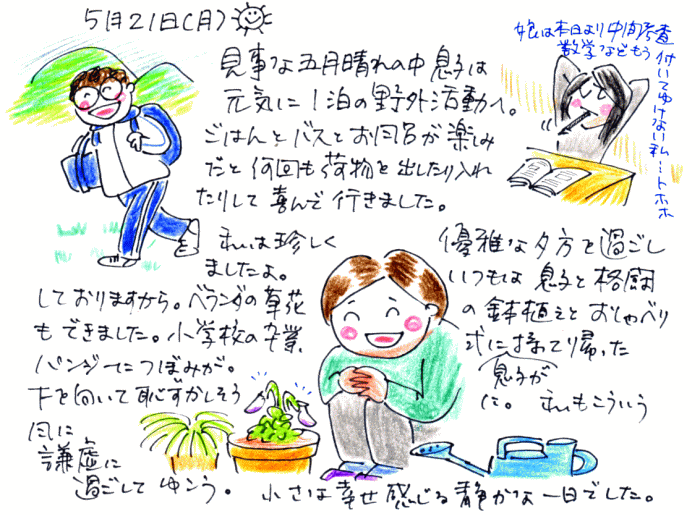 5月21日(月)
見事な五月晴れの中 息子は
元気に1泊の野外活動へ。
ごはんとバスとお風呂が楽しみ
だと何回も荷物を出したり入れ
たりして喜んで行きました。
娘は本日より中間考査
数学などもう
付いてゆけない私…トホホ
私は珍しく
優雅な夕方を過ごし
ましたよ。
いつもは息子と格闘
しておりますから。ベランダの草花
の鉢植えとおしゃべり
もできました。小学校の卒業
式に持って帰った
息子が
パンジーにつぼみが。
下を向いて恥ずかしそう
に。私もこういう
風に
謙虚に
過ごしてゆこう。
小さな幸せ感じる静かな一日でした。